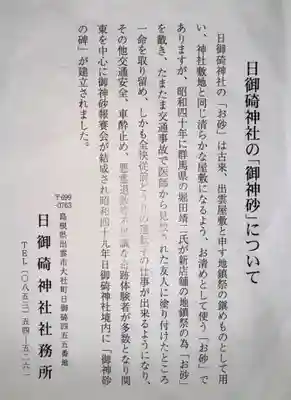 日御碕神社の「御神砂」について
日御碕神社の「お砂」は古来、出雲屋敷と申す地鎮祭の鎮めものとして用
い、神社敷地と同じ清らかな屋敷になるよう、お清めとして使う「お砂」で
ありますが、昭和四十年に群馬県の堀田靖二氏が新店舗の地鎮祭の為「お砂」
を戴き、たまたま交通事故で医師から見放された友人に塗り付けたところ
一命を取り留め、しかも全快従前どうりの運転手の仕事が出来るようになり、
その他交通安全、車酔止め、悪霊退散等不思議な奇跡体験者が多数となり関
東を中心に御神砂報賽会が結成され昭和四十九年日御碕神社境内に「御神砂
の碑」が建立されました。
〒699-0763
島根県出雲市大社町日御碕四五五番地
日御碕神社社務所
TEL(〇八五三)五四-五二六一